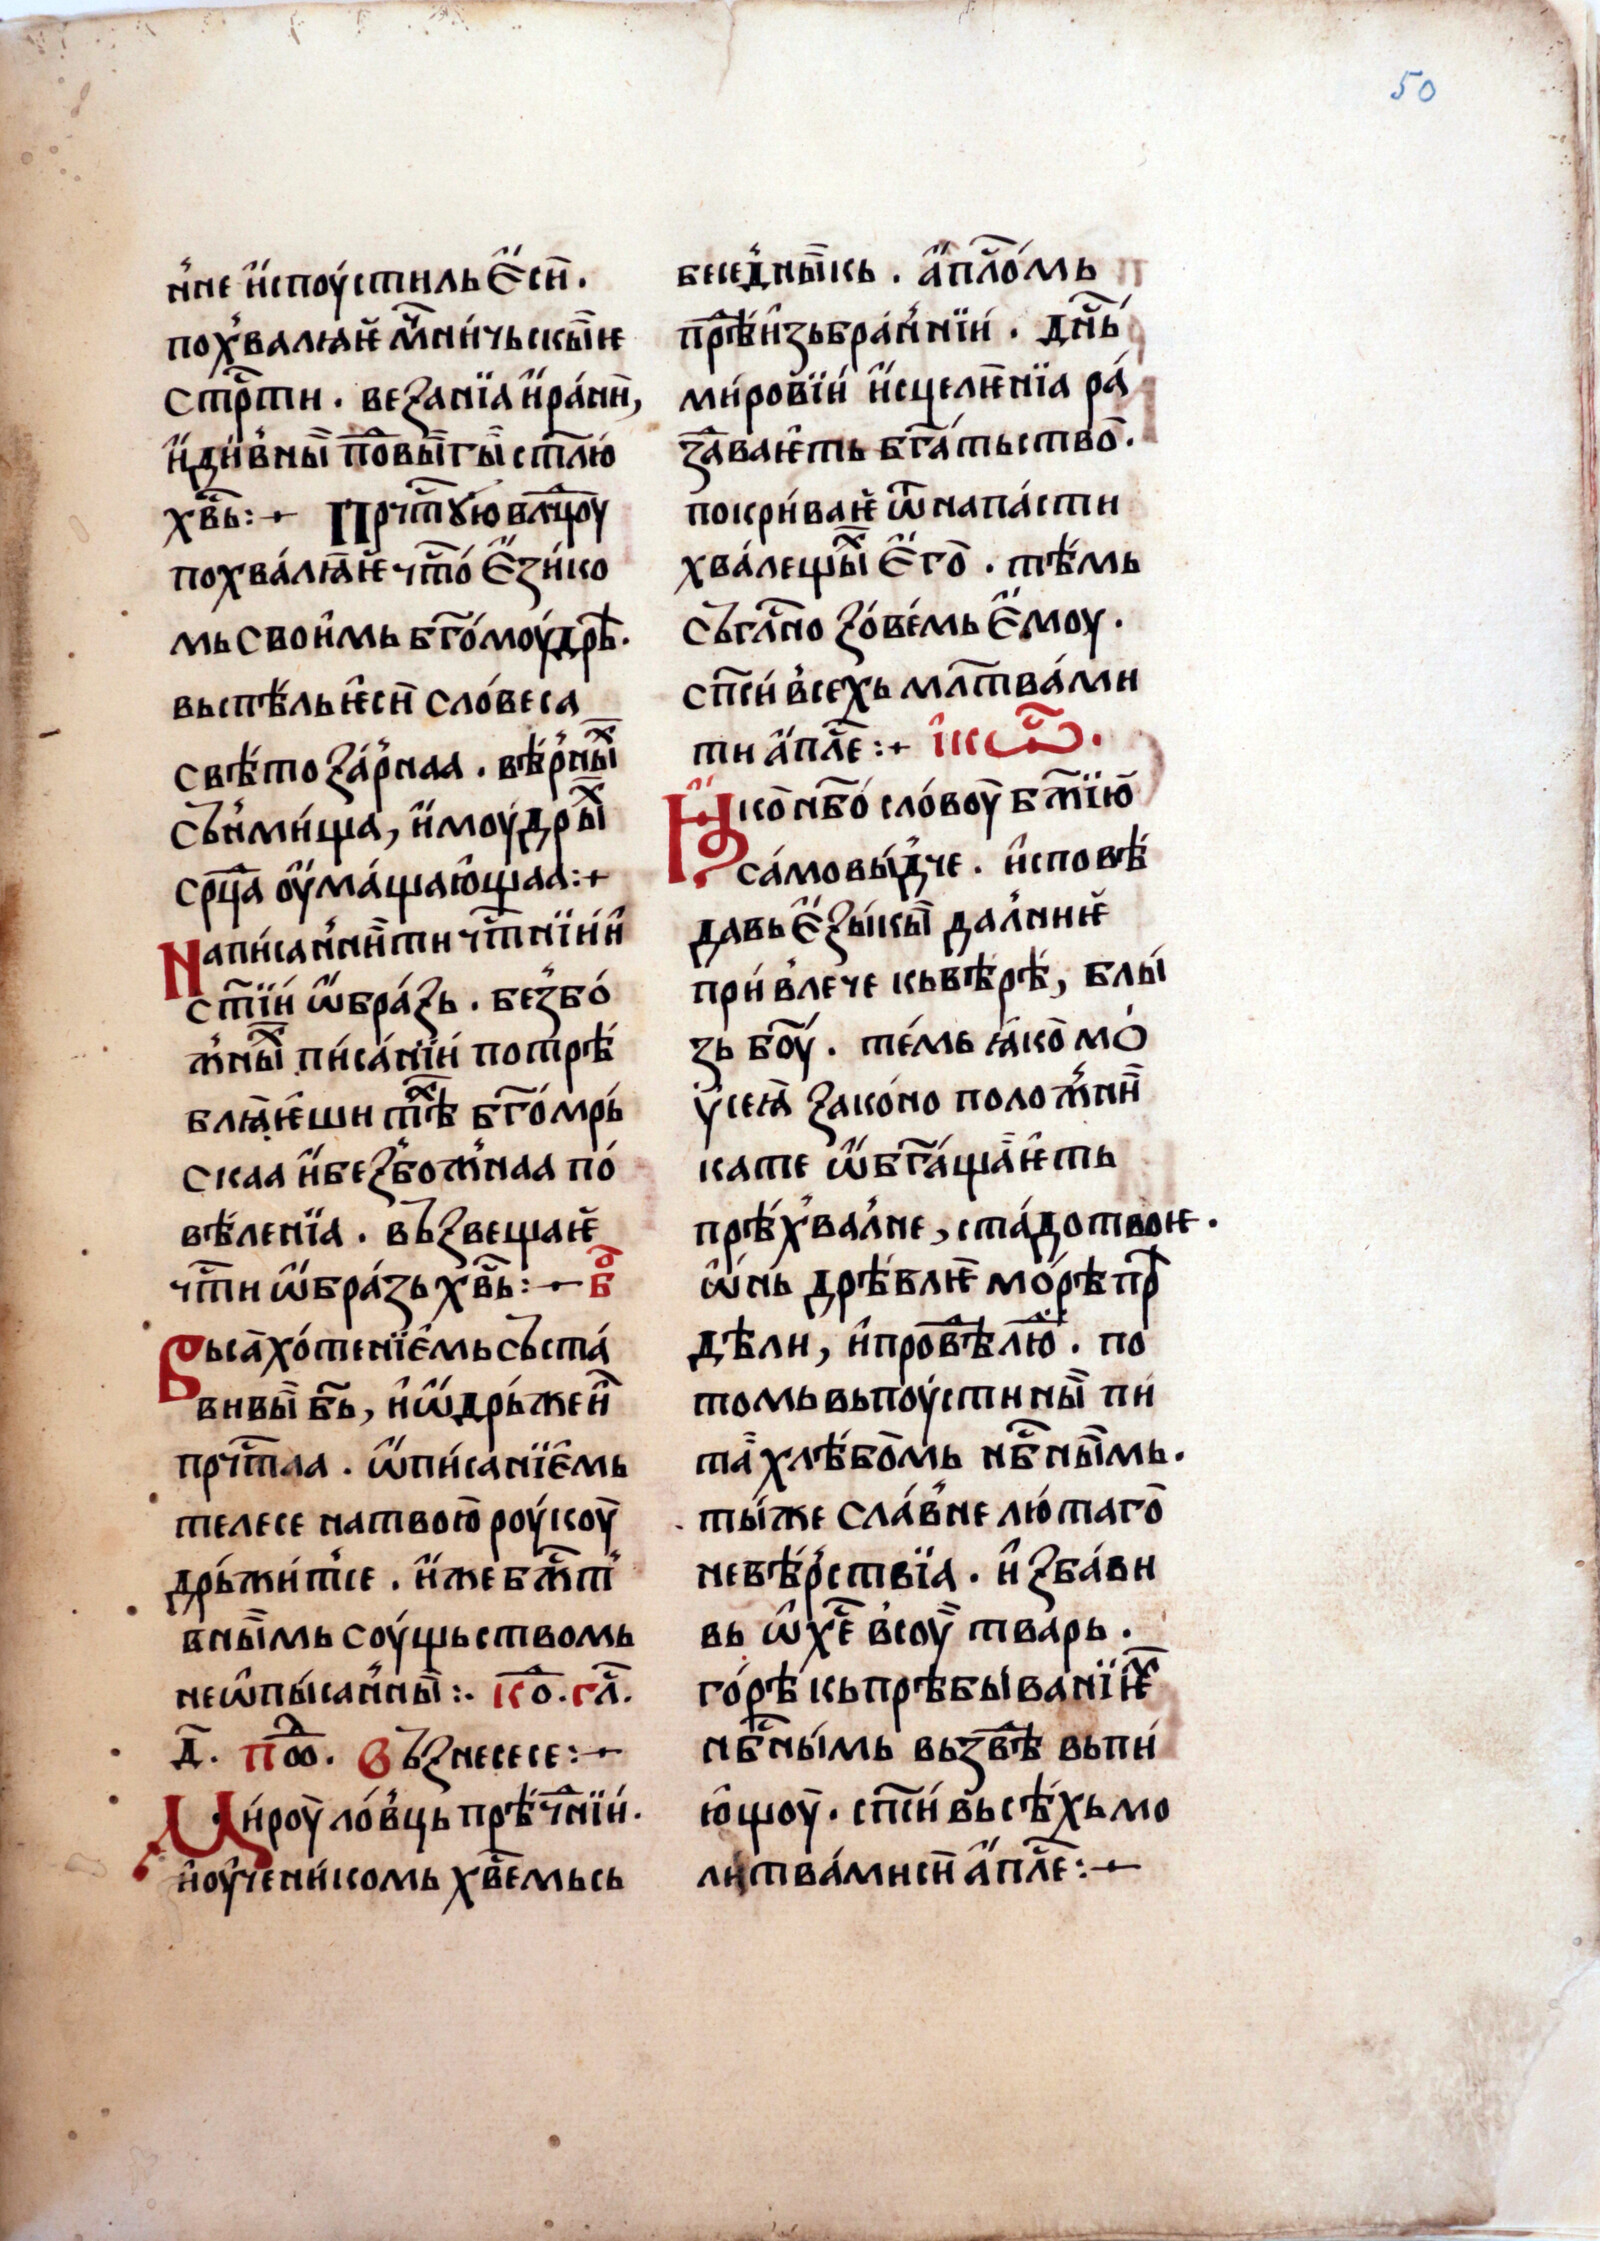 50
н҆нѐ и҆споу́стиль ѥ҆сѝ.
пох҆валꙗѥ м҃ничьскы̏ѥ
стр҃ти. веꙁанїа и҆ра́ни,
и҆ди́в҆ны̏ по҃вы̏гы̏ ст҃лю́
х҃вь:+ Прч҃тꙋ́ю вл҃цꙋоу
похва́лꙗѥ чт҃о́ ѥ҆зи́ко
мь свои҆мь бг҃о́моу́дрѣ.
вьспѣ́ль ѥ҆сѝ сло́веса
свѣ́тоꙁа́р҆наа. вѣ́р҆ны̏х
съ҆нми́ща, и҆моу́дры̏х
ср҃ца оу҆ма́щаю҆щаа:+
Напи́сан҆нѝти чт҃нїи́и҆
ст҃їи́ ѡ҆бра́ꙁь. беꙁ҆бо́
ж҆ны̏х пи́са́нїи потрѣ́
блꙗ҆ѥ҆ши тѣ҃х бг҃о́мрь́
скаа и҆беꙁ҆бож҆наа по́
вѣ́ленїа. въꙁвещаѥ
чт҃и ѡ҆бра́зь х҃вь:+ б҃
Вьса̀ хо́тенїѥ҆мь съста́
вивы̏ б҃ь, и҆ѡ҆дрьже́и҆
прч҃таа. ѡ҆пи́санїѥ҆мь
телесе натвою̀ роу́коу̀
дрь́жи́т҆се. и҆же бж҃ст҆
вны̏мь соу́щьствомь
неѡ҆пы́сан҆ны̏:. ко҃. гл҃.
д҃. по҃д. Въꙁнесесе:+
Ми́роу̀ ло́в҆ць прѣ́ч҃нїи́.
и҆оу҆чени́комь х҃вѣмьсь
бесе́д҆ны̏кь. а҆пл҃о́мь
прѣ҃и҆зьбран҆нїи́. дн҃ь́
ми́ровїи́ и҆сцелѥ́нїа ра́
з҃аваѥ҆ть бг҃а́тьство̀.
покри́ваѥ ѿнапа́сти
хва́лещы̏х ѥ҆го̀. тѣ́мь
съгл҃но ꙁо́ве́мь ѥ҆моу.
сп҃си́ в҆се́хь мл҃тва́ми
ти а҆пл҃е:+ і҆кѡ҃с.
И҆ко̀ нб҃о́ сло́воу̀ бж҃їю̀
са́мовы́д҆че. и҆сповѣ́
давь ѥ҆ꙁы́кы̏ дал҆ниѥ
при́в҆лече кьвѣ́рѣ́, блы́
зь б҃оу́. те́мь ꙗ҆ко̀ мо́
ѵ̈сеꙗ̀ ꙁако́но положени҆
кате ѡ҆бг҃а́щаѥ҆ть
прѣ́х҆вал҆не, ста́до твоѥ.
ѡ҆нь дрѣ́влѥ мо́рѣ пр҃
дѣли, и҆про҃вѣлю҆д. по
томь вьпоу́стины̏ пи
та̀ хлѣ́бо̀мь нб҃ны̏мь.
ты́же сла́в҆не лю́таго̀
невѣ́р҆ствїа. и҆ꙁба́ви
вь ѡ҆х҃ѣ в҆соу̀ тварь.
го́рѣ кьпрѣбы́ванїѥ҆м
нб҃ны́мь вьзв҃ѣ вьпи́
ю҆щоу̀. сп҃си́ вьсѣ́хь мо
литва́ми си̏ а҆пл҃е:+